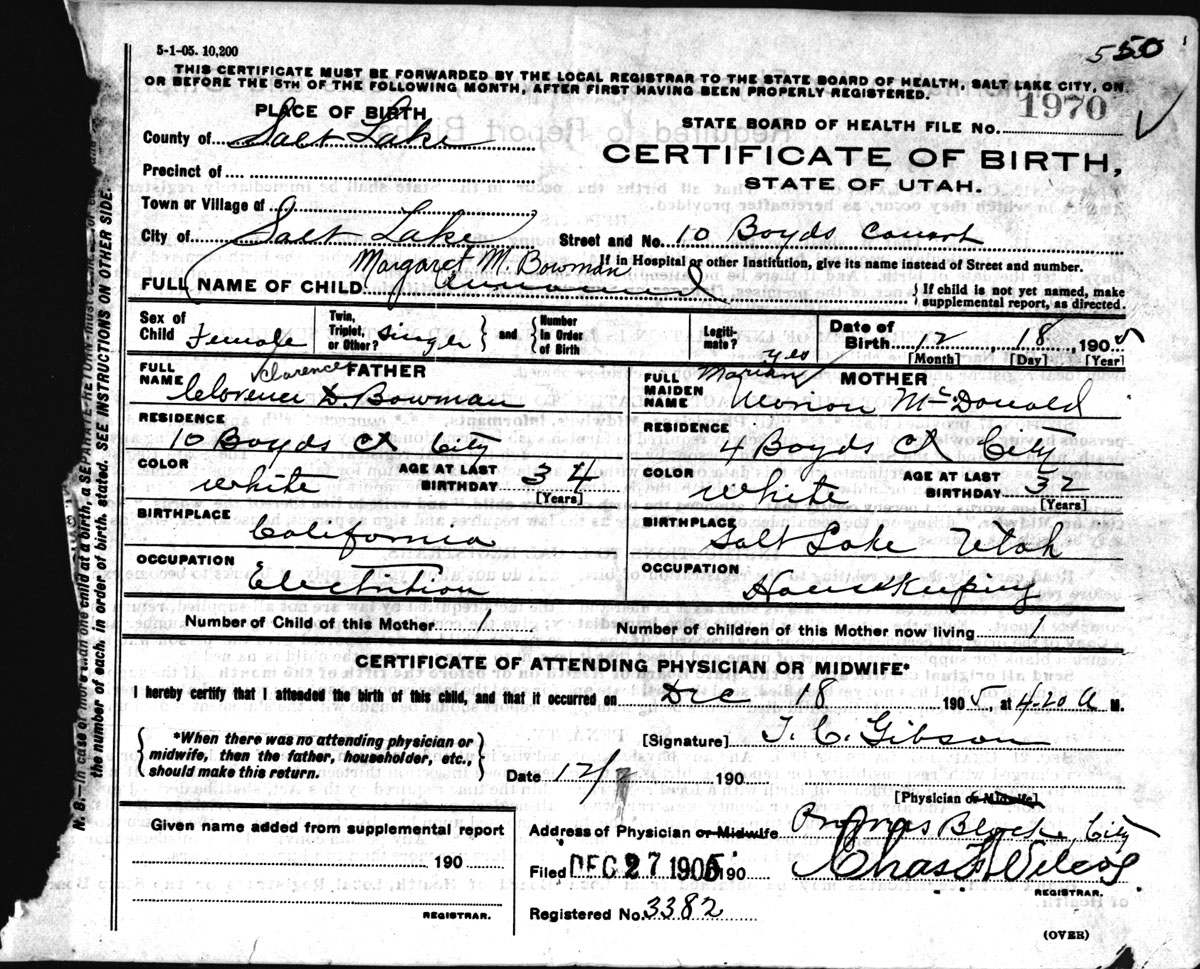 5-1-05. 10,200
550
THIS CERTIFICATE MUST BE FORWARDED BY THE LOCAL REGISTRAR TO THE STATE BOARD OF HEALTH, SALT LAKE CITY, ON
OR BEFORE THE 5TH OF THE FOLLOWING MONTH, AFTER FIRST HAVING BEEN PROPERLY REGISTERED.
PLACE OF BIRTH
STATE BOARD OF HEALTH FILE NO. 1970
County of Salt Lake
CERTIFICATE OF BIRTH,
Precinct of
STATE OF UTAH.
Town or Village of
City of Salt Lake Street and No. 10 Boyds
If in Hospital or other Institution, give its name instead of Street and number.
Margaret M. Bowman
FULL NAME OF CHILD unnamed
{ If child is not yet named, make supplemental report, as directed.
Sex of Child Female
Twin, Triplet, or Other? Single } and { Number in Order of Birth
Legitimate? yes
Date of Birth 12 18, 1905
[Month] [Day] [Year]
FATHER
FULL NAME Clarence
D. Bowman
MOTHER
FULL MAIDEN NAME Marian
McDonald
RESIDENCE 10 Boyds Ct City
RESIDENCE 4 Boyds Ct City
COLOR White AGE AT LAST BIRTHDAY 34 [Years]
COLOR White AGE AT LAST BIRTHDAY 32 [Years]
BIRTHPLACE California
BIRTHPLACE Salt Lake Utah
OCCUPATION Electrition
OCCUPATION
Number of Child of this Mother 1
Number of children of this Mother now living 1
CERTIFICATE OF ATTENDING PHYSICIAN OR MIDWIFE*
I hereby certify that I attended the birth of this child, and that it occurred on Dec 18 1905, at 4.20 A M.
{ *When there was no attending physician or midwife, then the father, householder, etc., should make this return. }
[Signature] T. C. Gibson
Date 12/ 190
[Physician or Midwife]
Given name added from supplemental report
190
REGISTRAR.
Address of Physician or Midwife Block, City
Filed DEC 27 1905 190
Chas
REGISTRAR.
Registered No. 3382
(OVER)
N. B.—In case of more than one child at a birth, a SEPARATE RETURN must
the number of each, in order of birth, stated. SEE INSTRUCTIONS ON OTHER SIDE.